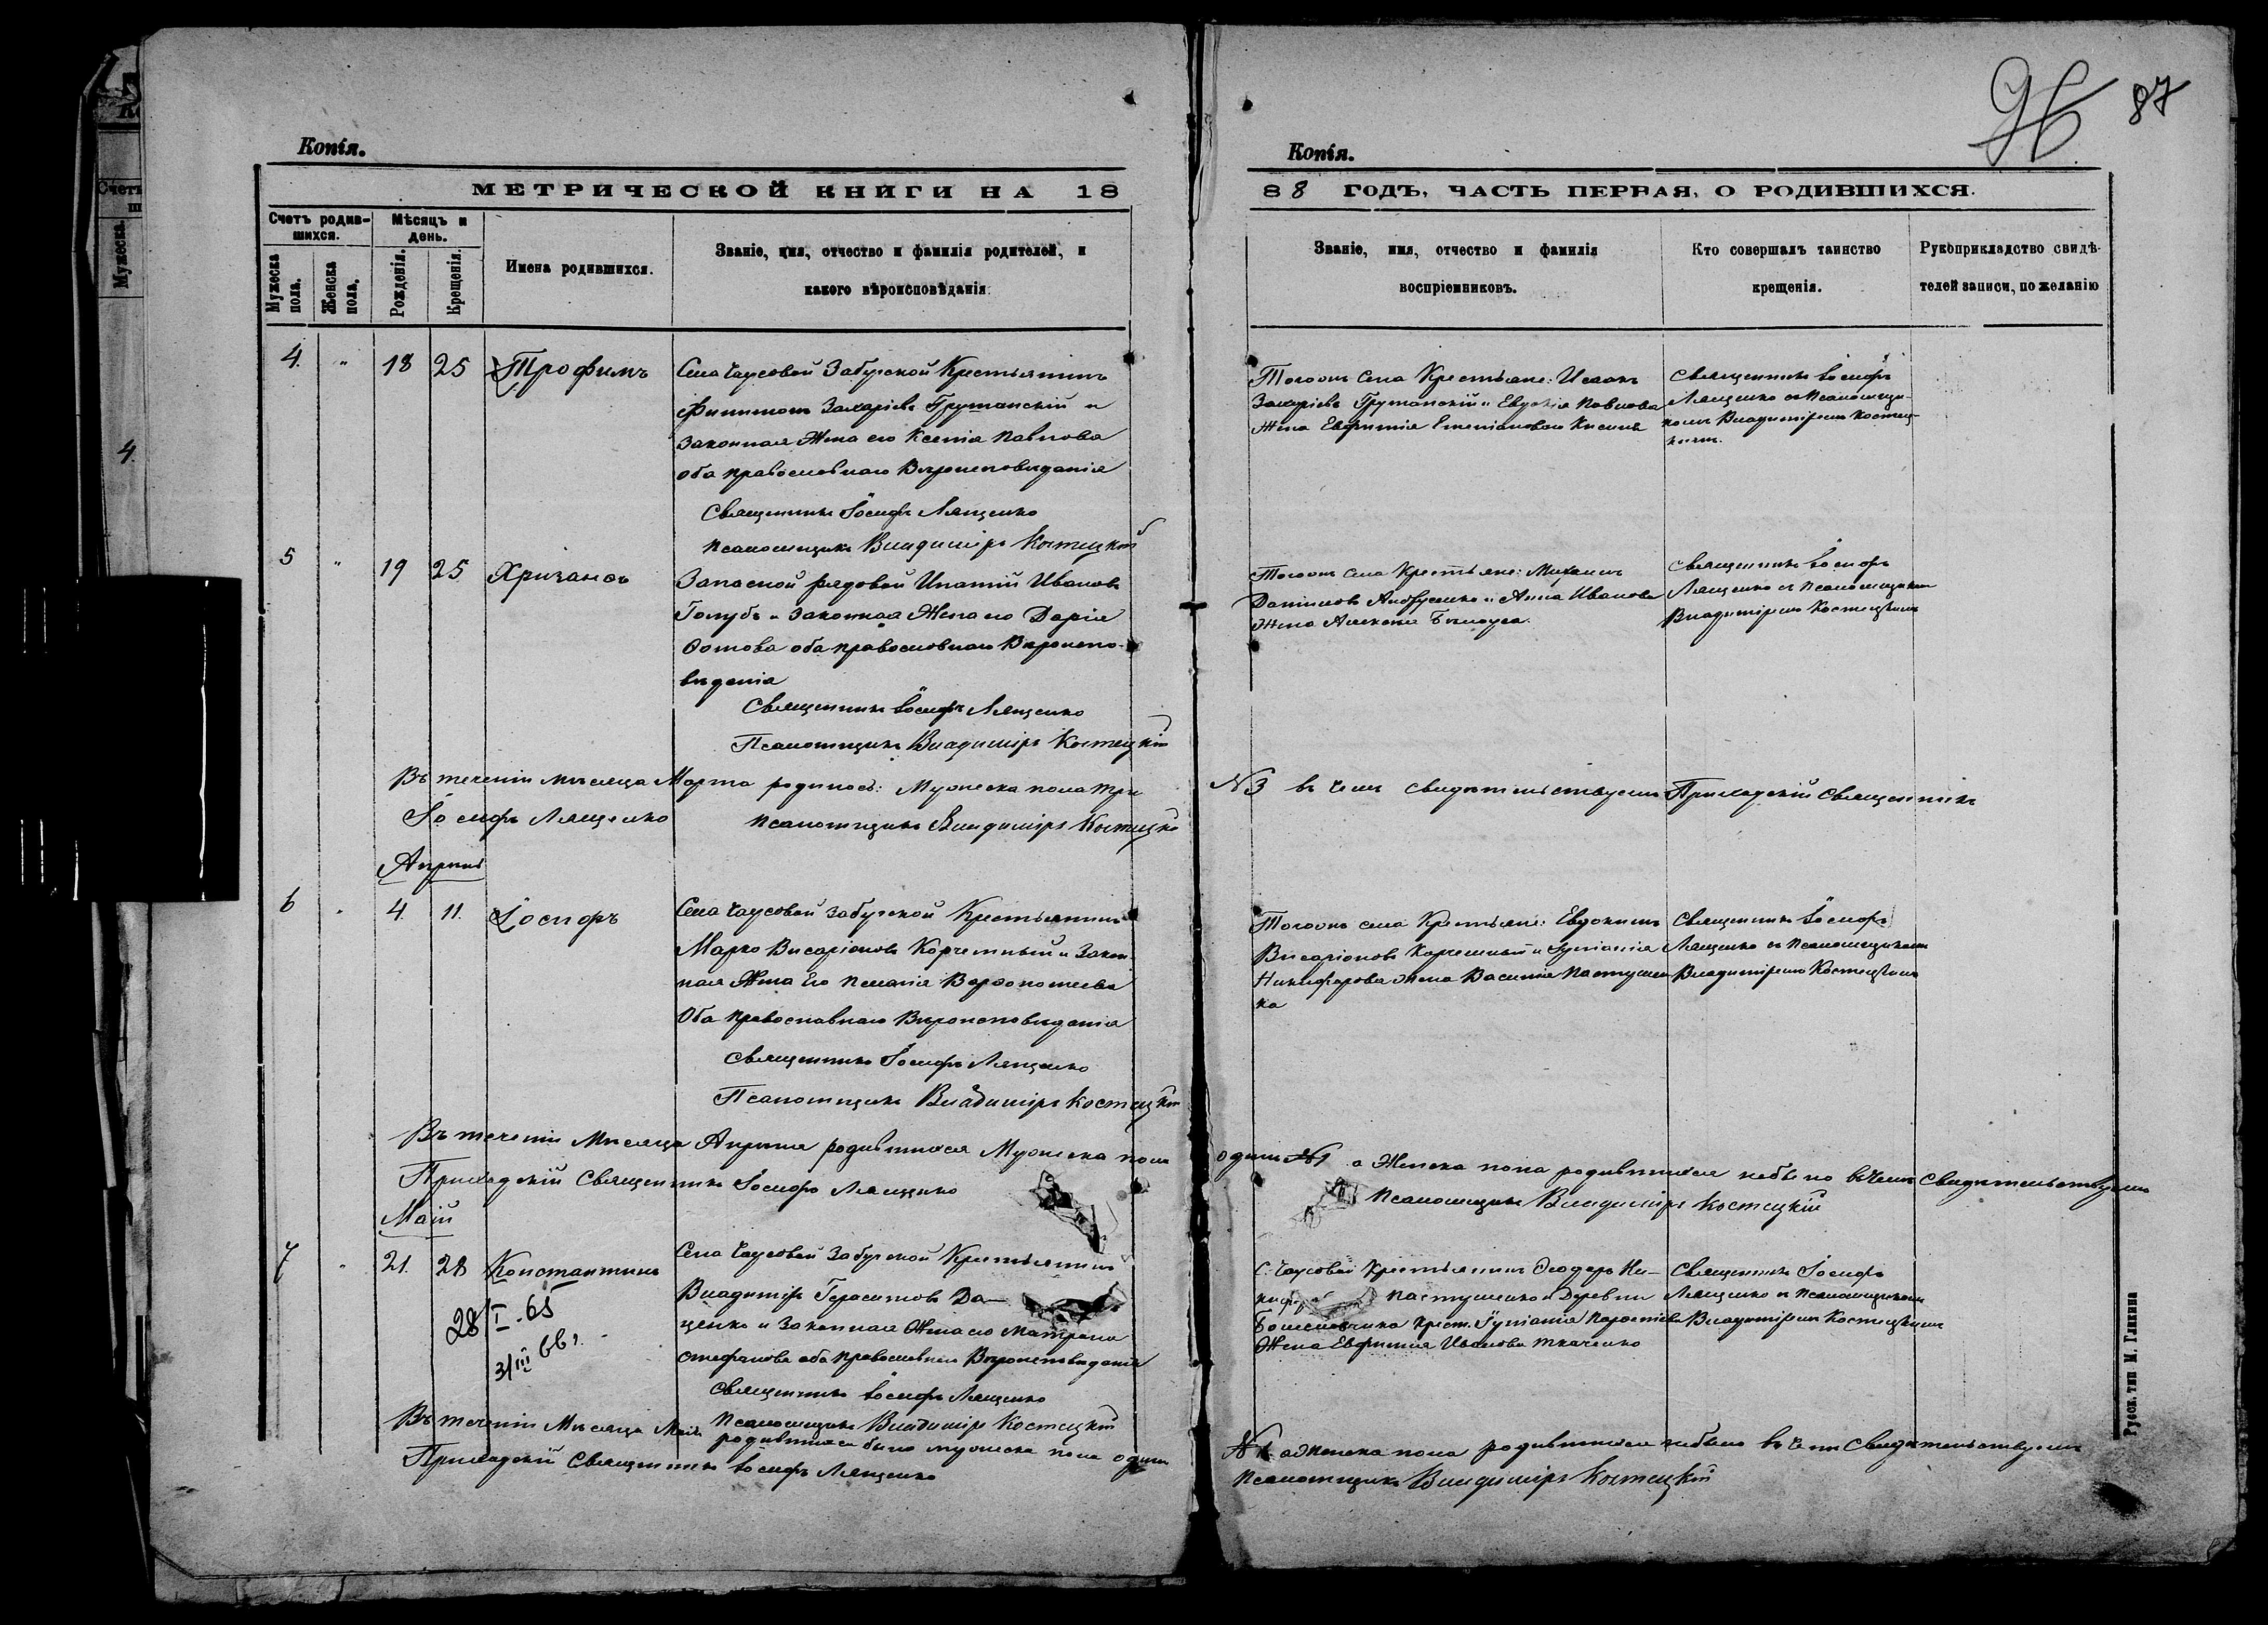 Копія.
МЕТРИЧЕСКОЙ КНИГИ НА 18
Счетъ родив-
шихся.
Мѣсяцъ и
день.
Мужеска
пола.
Женска
пола.
Рожденія.
Крещенія.
Имена родившихся.
Званіе, имя, отчество и фамилія родителей, и
какого вѣроисповѣданія.
4. " 18 25 Трофимъ
Села Чаусовой Забугской Крестьянинъ
Филимонъ Захаріевъ Грушанскій и
законная Жена его Ксенія Павлова
оба православнаго Вѣроисповѣданія
Священникъ Іосифъ Лященко
Псаломщикъ Владиміръ Костецкій
5 " 19 25 Хрисанфъ
Запасной рядовой Игнатій Ивановъ
Голубъ и Законная Жена его Дарія
оба православнаго Вѣроиспо-
вѣденія
Священникъ Іосифъ Лященко
Псаломщикъ Владиміръ Костецкій
Въ теченіи мѣсяца Марта родилось: Мужеска пола три
Іосифъ Лященко Псаломщикъ Владиміръ Костецкій
Апрѣль
6 " 4. 11. Іосифъ
Села Чаусовой Забугской Крестьянинъ
Марко Висаріоновъ Корчемный и Закон-
ная Жена Его Пелагія
Оба Православнаго Вѣроисповѣданія
Священникъ Іосифъ Лященко
Псаломщикъ Владиміръ Костецкій
Въ теченіи Мѣсяца Апрѣля родившихся Мужеска пола
Приходскій Священникъ Іосифъ Лященко
Май
7 " 21. 28 Константинъ
28/I-65
31/III 66 г.
Села Чаусовой Забугской Крестьянинъ
Владиміръ Герасимовъ Да-
ценко и Законная Жена его Матрона
Стефанова оба Православнаго Вѣроисповѣданія
Священникъ Іосифъ Лященко
Псаломщикъ Владиміръ Костецкій
Въ теченіи Мѣсяца Мая родившихся было мужеска пола одинъ
Приходскій Священникъ Іосифъ Лященко
87
Копія.
88 ГОДЪ, ЧАСТЬ ПЕРВАЯ, О РОДИВШИХСЯ.
Званіе, имя, отчество и фамилія
воспріемниковъ.
Кто совершалъ таинство
крещенія.
Рукоприкладство свидѣ-
телей записи, по желанію
Тогожъ Села Крестьяне: Исаакъ
Захаріевъ Грушанскій и Евдокія Павлова
Жена
Священникъ Іосифъ
Лященко съ Псаломщи-
комъ Владиміромъ Костец-
кимъ.
Тогожъ Села Крестьяне: Михаилъ
Даниловъ Андрусенко и Анна Иванова
Жена Алексея Бѣлоуса.
Священникъ Іосифъ
Лященко съ Псаломщикомъ
Владиміромъ Костецкимъ
№ 3 въ чемъ свидѣтельствуемъ Приходскій Священникъ
Тогожъ села Крестьяне: Евдокимъ
Висаріоновъ Корчемный и
Никифорова Жена Василія Пастушен-
ка
Священникъ Іосифъ
Лященко съ Псаломщикомъ
Владиміромъ Костецкимъ
одинъ №1 а Женска пола родившихся небыло въ чемъ Свидѣтельствуемъ
Псаломщикъ Владиміръ Костецкій
С. Чаусовой Крестьянинъ Феодоръ Ни-
Пастушенко и Деревни
Крест.
Жена Евфимія Иванова Ткаченко
Священникъ Іосифъ
Лященко съ Псаломщикомъ
Владиміромъ Костецкимъ
№ 1 а Женска пола родившихся небыло въ чемъ Свидѣтельствуемъ
Псаломщикъ Владиміръ Костецкій
Русск. тип. М. Гликина
Счетъ
Мужеска.
4.